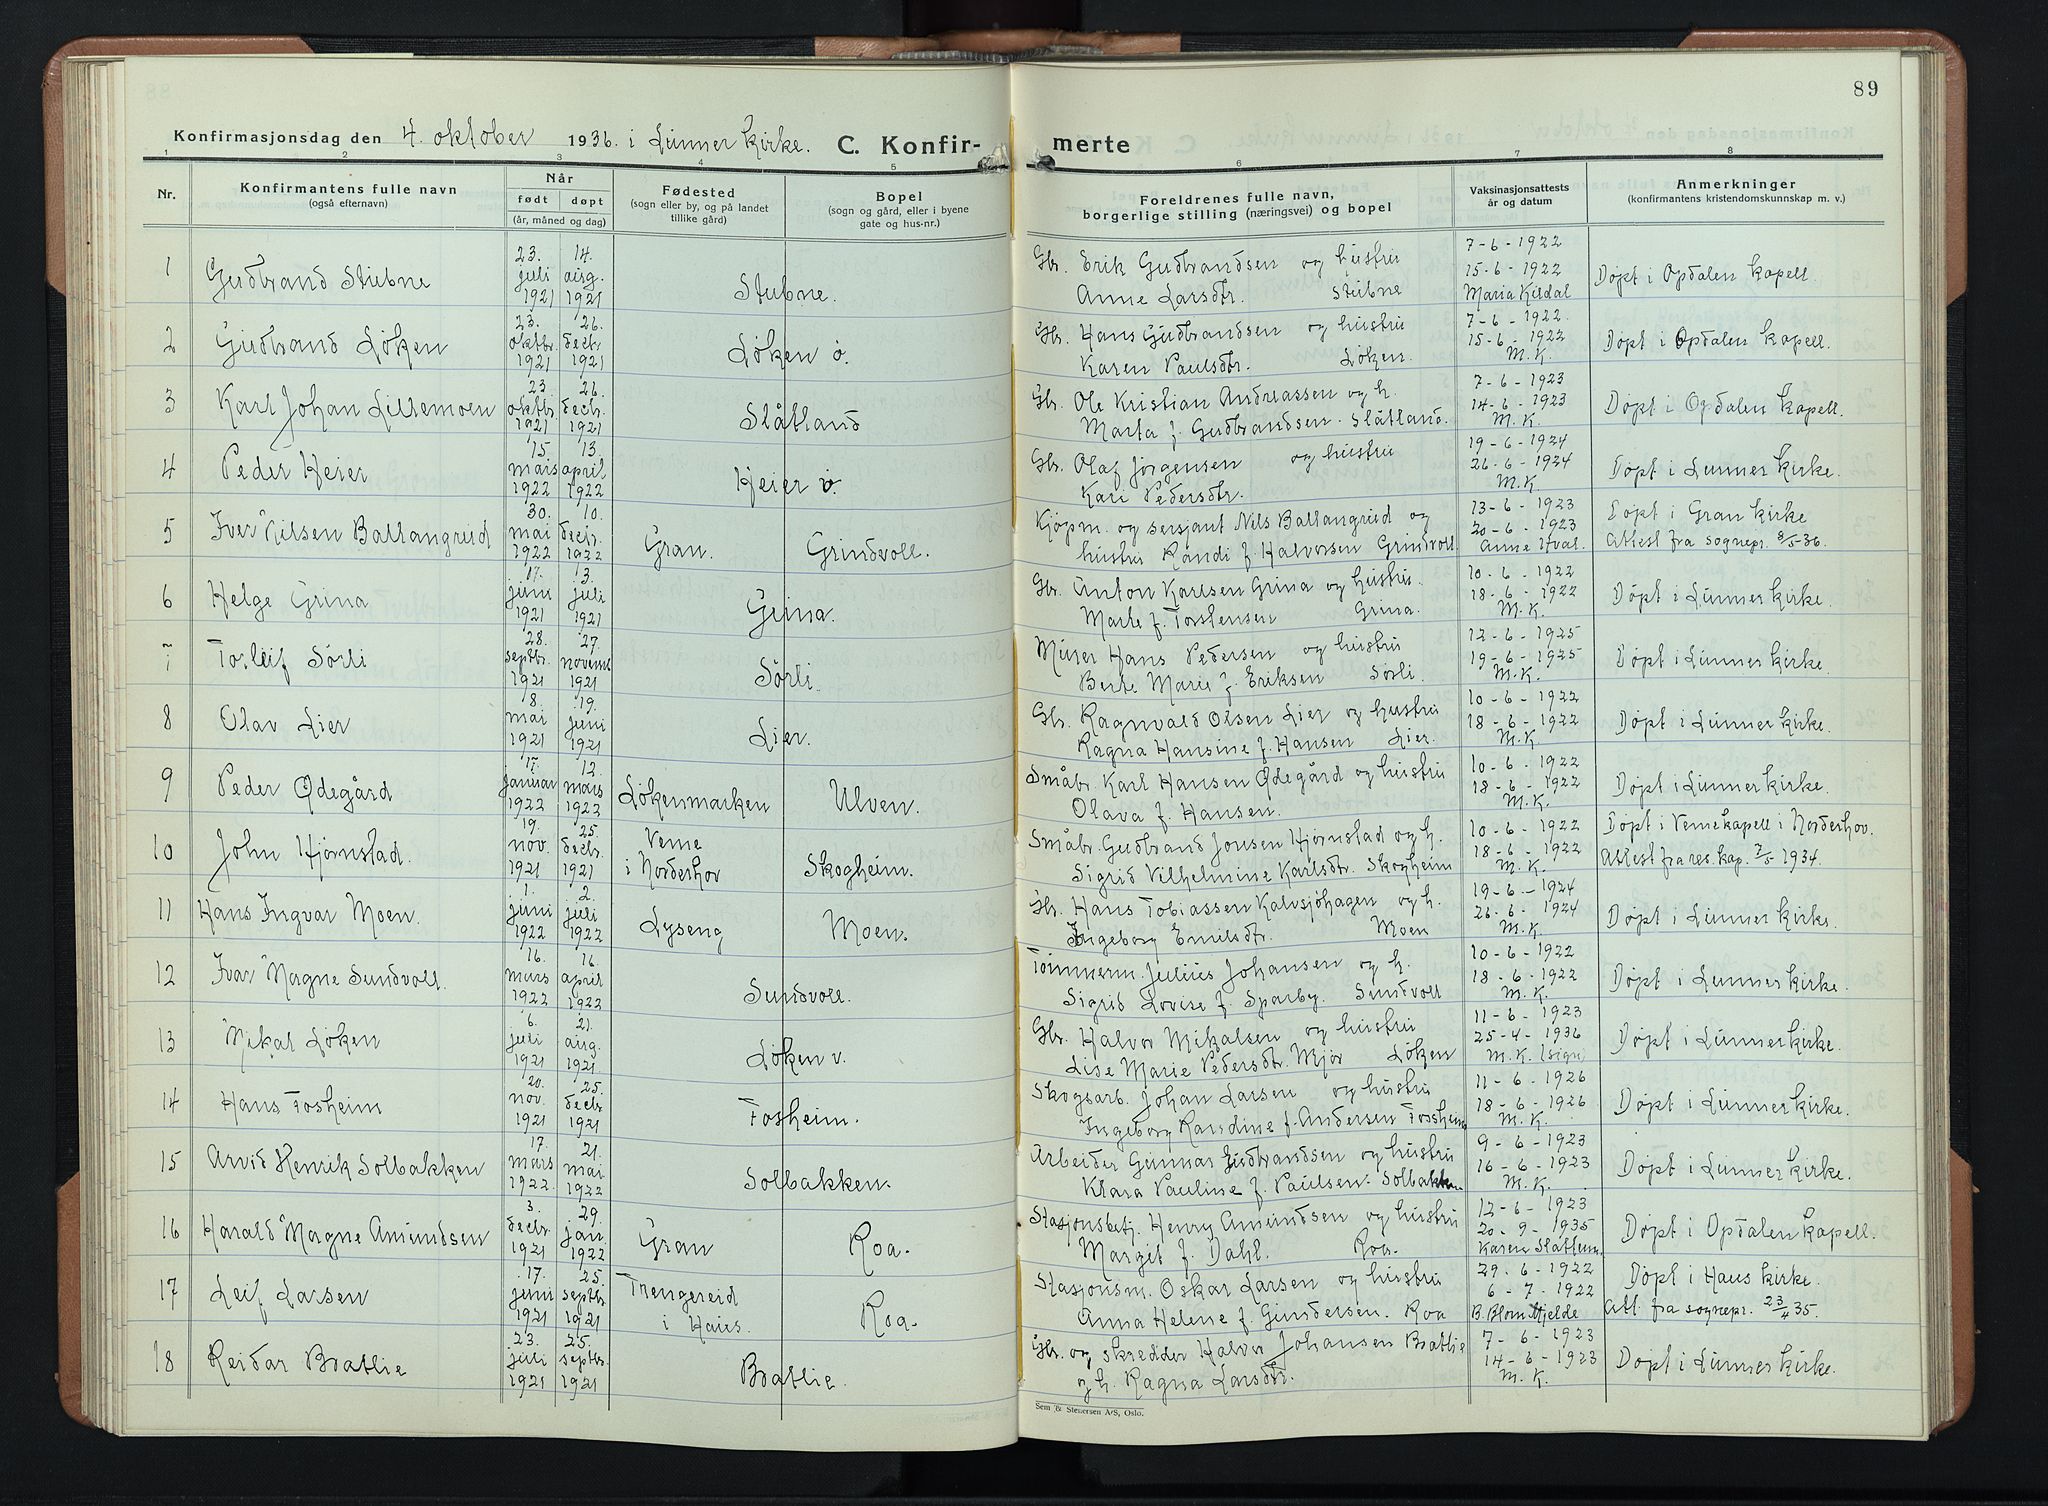 89
Konfirmasjonsdag den 4. oktober 1936. i Lunner Kirke. C. Konfirmerte
1 2 3 4 5 6 7 8
Nr. Konfirmantens fulle navn (også efternavn) Når født døpt (år, måned og dag) Fødested (sogn eller by, og på landet tillike gård) Bopel (sogn og gård, eller i byene gate og hus-nr.) Foreldrenes fulle navn, borgerlige stilling (næringsvei) og bopel Vaksinasjonsattests år og datum Anmerkninger (konfirmantens kristendomskunnskap m. v.)
1 Gudbrand Stubne 23. juli 1921 14. aug. 1921 Stubne. Gbr. Erik Gudbrandsen og hustru 7-6-1922
Anne Larsdtr. Stubne 15-6-1922 Maria Kildal Døpt i Opdalen kapell.
2 Gudbrand Løken 23. oktbr. 1921 26. decbr. 1921 Løken ø. Gbr. Hans Gudbrandsen og hustru 7-6-1922.
Karen Paulsdtr. Løken. 15-6-1922 M.K. Døpt i Opdalen kapell.
3 Karl Johan Lillemoen 23. oktbr. 1921 26. decbr. 1921 Slåtland Gbr. Ole Kristian Andreassen og h. 7-6-1923
Marta f. Gudbrandsen. Slåtland. 14-6-1923 M.K. Døpt i Opdalen kapell.
4 Peder Heier 15. mars 1922 13. april 1922 Heier v. Gbr. Olaf Jørgensen og hustru 19-6-1924
Kari Pedersdtr. 26-6-1924 M.K. Døpt i Lunner kirke.
5 Iver Nilsen Ballangrud 30. mai 1922 10. decbr. 1922 Gran. Grindvoll. Kjøpm. og sersjant Nils Ballangrud og 13-6-1923 Døpt i Gran kirke
hustru Randi f. Halvorsen Grindvoll. 20-6-1923 Anne Hval. Attest fra sognepr. 8/5-36.
6 Helge Grina 17. juni 1921 3. juli 1921 Grina. Gbr. Anton Karlsen Grina og hustru. 10-6-1922
Marte f. Torstensen Grina. 18-6-1922 M.K. Døpt i Lunner kirke.
7 Torleif Sørli 28. septbr. 1921 27. novemb. 1921 Sørli. Murer Hans Pedersen og hustru 12-6-1925
Berte Marie f. Eriksen Sørli. 19-6-1925 M.K. Døpt i Lunner kirke.
8 Olav Lier 8. mai 1921 19. juni 1921 Lier. Gbr. Ragnvald Olsen Lier og hustru 10-6-1922
Ragna Hansine f. Hansen Lier. 18-6-1922 M.K. Døpt i Lunner kirke.
9 Peder Ødegård 17. januar 1922 12. mars 1922 Løkenmarken Ulven. Småbr. Karl Hansen Ødegård og hustru 10-6-1922
Olava f. Hansen. 18-6-1922 M.K. Døpt i Lunner kirke.
10 John Hjørnstad. 19. nov. 1921 25. decbr. 1921 Veme i Norderhov Skogheim. Småbr. Gudbrand Jonsen Hjørnstad og h. 10-6-1922 Døpt i Vemekapell i Norderhov.
Sigrid Vilhelmine Karlsdtr. Skogheim 18-6-1922 M.K. Attest fra res. kap. 7/5 1934.
11 Hans Ingvar Moen. 1. juni 1922 2. juli 1922 Lyseng Moen. Gbr. Hans Tobiassen Kalvsjøhagen og h. 19-6-1924
Ingeborg Emilsdtr. Moen 26-6-1924 M.K. Døpt i Lunner kirke.
12 Ivar Magne Sundvoll. 16. mars 1922 16. april 1922 Sundvoll. Tømmerm. Julius Johansen og h. 10-6-1922
Sigrid Lovise f. Sparby. Sundvoll 18-6-1922 M.K. Døpt i Lunner kirke.
13 Mikal Løken 6. juli 1921 21. aug. 1921 Løken v. Gbr. Halvor Mikalsen og hustru 11-6-1923
Lise Marie Pedersdtr. Mjør Løken 25-4-1936 M.K. (sign) Døpt i Lunner kirke.
14 Hans Tosheim 20. nov. 1921 25. decbr. 1921 Tosheim. Skogsarb. Johan Larsen og hustru 11-6-1926
Ingeborg Randine f. Andersen Tossheim 18-6-1926 M.K. Døpt i Lunner kirke.
15 Arvid Henrik Solbakken 17. mars 1922. 21. mai 1922 Solbakken. Arbeider Gunnar Gudbrandsen og hustru 9-6-1923
Klara Pauline f. Paulsen. Solbakken 16-6-1923 M.K. Døpt i Lunner kirke.
16 Harald Magne Amundsen 3. decbr. 1921 29. jan. 1922 Gran Roa. Stasjonsbetj. Henry Amundsen og hustru 12-6-1923
Margit f. Dahl. Roa. 20.-9-1935 Karen Slattum. Døpt i Opdalen kapell.
17 Leif Larsen 17. juni 1921 25. septbr. 1921 Trengereid i Haus. Roa. Stasjonsm. Oskar Larsen og hustru 29.-6-1922 Døpt i Haus kirke.
Anna Helene f. Gundersen. Roa 6-7-1922 B. Blom Hjelde Att. fra sognepr. 23/4 35.
18 Reidar Bratlie 23. juli 1921 25. septbr. 1921 Bratlie. Gbr. og skredder Halvor Johansen Bratlie 7-6-1923
og h. Ragna Larsdtr. 14-6-1923 M.K. Døpt i Lunner kirke.
Sem & Stenersen A/S, Oslo.